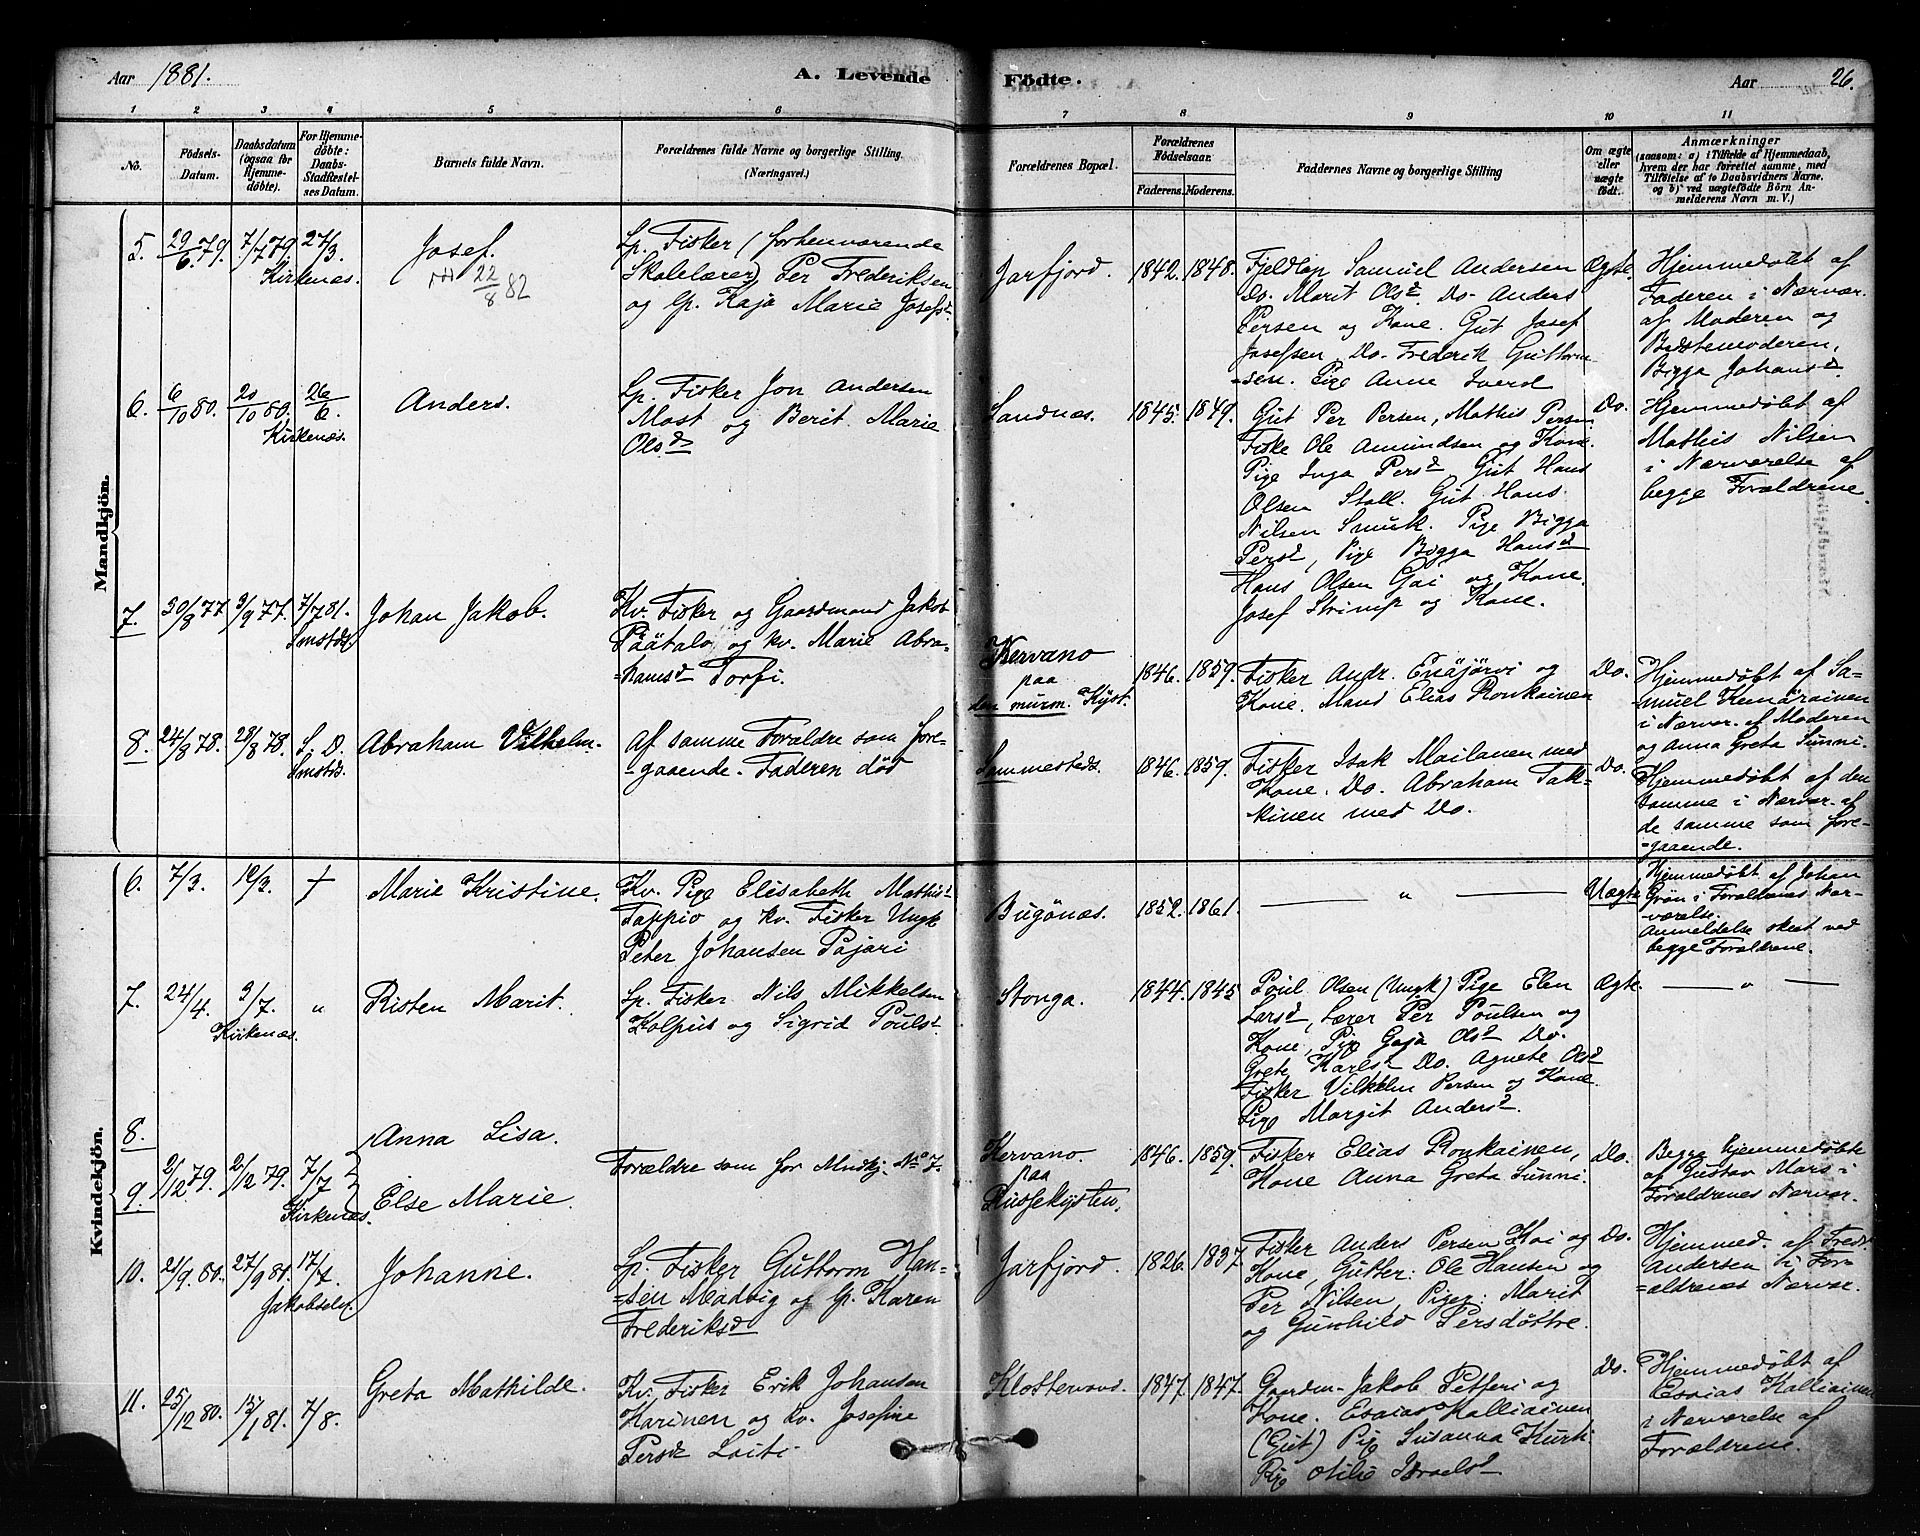 Aar 1881.
A. Levende
Födte.
Aar
26.
1 2 3 4 5 6 7 8 9 10 11
No.
Födsels-
Datum.
Daabsdatum
(ogsaa for
Hjemme-
döbte).
For Hjemme-
döbte:
Daabs-
Stadfæstel-
ses Datum.
Barnets fulde Navn.
Forældrenes fulde Navne og borgerlige Stilling.
(Næringsvei.)
Forældrenes Bopæl.
Forældrenes
Födselsaar.
Faderens. Moderens.
Faddernes Navne og borgerlige Stilling
Om ægte
eller
uægte
födt.
Anmærkninger
(saasom: a) i Tilfælde af Hjemmedaab,
hvem der har forrettet samme, med
Tilföielse af to Daabsvidners Navne,
og b) ved uægtefödte Börn An-
melderens Navn m. V.)
Mandkjön.
5. 29/6 79. 7/7 79 27/3.
Kirkenæs.
Josef.
22/8 82
Lp. Fisker (forhenværende
Skolelærer) Per Frederiksen
og lp. Kaja Marie Josefsd.
Jarfjord. 1842. 1848.
Fjeldlap Samuel Andersen
Do. Marit Olsd. Do. Anders
Persen og Kone. Gut Josef
Josefsen, Do. Frederik Guttorm-
sen. Pige Anne Iversd
Ægte.
Hjemmedöbt af
Faderen i Nærvær.
af Moderen og
Bedstemoderen,
Bigga Johansd.
6. 6/10 80. 20/10 80. 26/6.
Kirkenæs.
Anders.
Lp. Fisker Jon Andersen
Most og Berit Marie
Olsd
Sandnæs. 1845. 1849.
Gut Per Persen, Mathis Persen
Fiske Ole Amundsen og Kone.
Pige Inga Persd. Gut Hans
Olsen Stall. Gut Hans
Nilsen Smuk. Pige Bigga
Persd, Pige Bigga Hansd
Hans Olsen Gai og Kone.
Josef Strimp og Kone.
Do.
Hjemmedöbt af
Mathis Nilsen
i Nærværelse af
begge Forældrene.
7. 30/8 77. 3/9 77. 7/7 81.
Smstds.
Johan Jakob.
Kv. Fisker og Gaardmand Jakob
Päätalo og kv. Marie Abra-
hamsd Torfi.
Kervano
paa
den murm. Kyst.
1846. 1859.
Fisker Andr. Enäjärvi og
Kone. Mand Elias Ronkainen
Do.
Hjemmedöbt af Sa-
muel Kemäräinen
i Nærvær. af Moderen
og Anna Greta Sunni.
8. 24/8 78. 28/8 78. S. D.
Smstds.
Abraham Vilhelm.
Af samme Forældre som fore-
gaaende. Faderen död
Sammesteds. 1846. 1859.
Fisker Isak Mailanen med
Kone. Do. Abraham Tak-
kinen med Do.
Do.
Hjemmedöbt af den
samme i Nærvær. af
de samme som fore-
gaaende.
Kvindekjön.
6. 7/3. 10/3. †
Marie Kristine.
Kv. Pige Elisabeth Mathisd
Tappio og kv. Fisker Ungk
Peter Johansen Pajari
Bugönæs. 1852. 1861.
"
Uægte
Hjemmedöbt af Johan
Grön i Forældrenes Nær-
værelse.
Anmeldelse skeet ved
begge Forældrene.
7. 24/4. 2/7. "
Kirkenæs.
Risten Marit.
Lp. Fisker Nils Mikkelsen
Holpus og Sigrid Poulsd.
Stonga. 1844. 1845
Poul Olsen (Ungk) Pige Elen
Larsd, Lærer Per Poulsen og
Kone, Pige Gaja Olsd Do.
Grete Karlsd Do. Agnete Olsd
Fisker Vilhelm Persen og Kone.
Pige Margit Andersd.
Ægte.
"
8.
Anna Lisa.
9. 2/12 79. 2/12 79. 7/7
Kirkenæs.
Else Marie.
Forældre som for Mndkj. No 7.
Kervano.
paa
Russekysten.
1846. 1859.
Fisker Elias Ronkainen,
Kone Anna Greta Sunni.
Do.
Begge hjemmedöbte
af Gustav Mars i
Forældrenes Nærvær.
10. 21/9. 80. 27/9 80. 17/7.
Jakobselv.
Johanne.
Lp. Fisker Guttorm Han-
sen Madvig og lp. Karen
Frederiksd
Jarfjord. 1826. 1837
Fisker Anders Persen Koi og
Kone, Gutter: Ole Hansen og
Per Nilsen, Piger: Marit
og Gunhild Persdöttre.
Do.
Hjemmed. af Fredr.
Andersen i For-
ældrenes Nærvær.
11. 25/12 80. 15/1 81. 7/8.
Greta Mathilde.
Kv. Fisker Erik Johansen
Karinen og kv. Josefine
Persd Loiti.
Klostervand. 1847. 1847.
Gaardm. Jakob Petteri og
Kone. Esaias Kalliainen
(Gut) Pige Susanna Kurti
Pige Otilie Israelsd
Do.
Hjemmedöbt af
Esaias Kalliainen
i Nærværelse af
Forældrene.